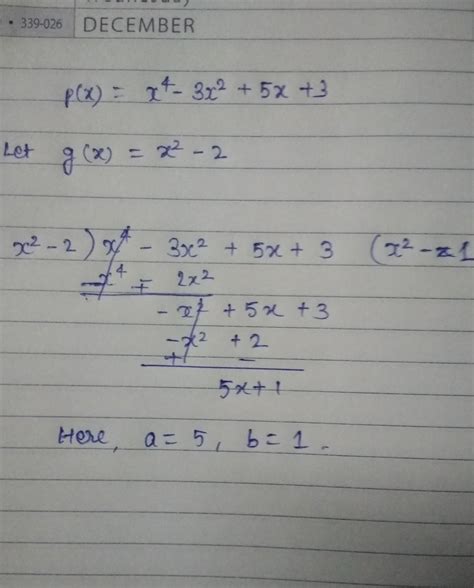 Wednesday
• 339-026 DECEMBER
p(x) = x⁴ - 3x² + 5x + 3
Let g(x) = x² - 2
x² - 2 ) x⁴ - 3x² + 5x + 3 ( x² - 1
- x⁴ ∓ 2x²
- x² + 5x + 3
- x² + 2
+ -
5x + 1
Here, a = 5, b = 1.